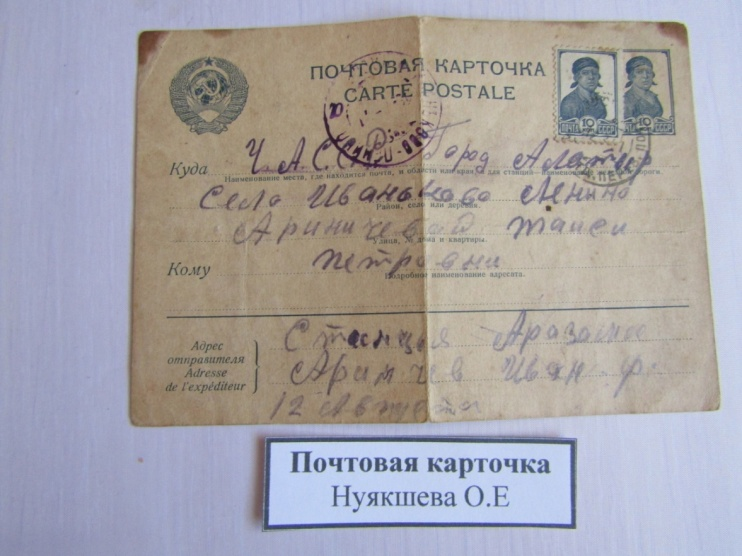 ПОЧТОВАЯ КАРТОЧКА
CARTE POSTALE
10
ПОЧТА СССР
10
СССР
Куда Ч.А.С.С. Город Алатир
Наименование места, где находится почта, и области или края, а для станций — наименование железной дороги.
Село Иваньково Ленино
Район, село или деревня.
Ариничевой Таиси
Улица, № дома и квартиры.
Кому Петровни
Подробное наименование адресата.
Адрес
отправителя
Adresse
de l'expéditeur
Станция
Иван Ф.
12 Августа
Почтовая карточка
Нуякшева О.Е